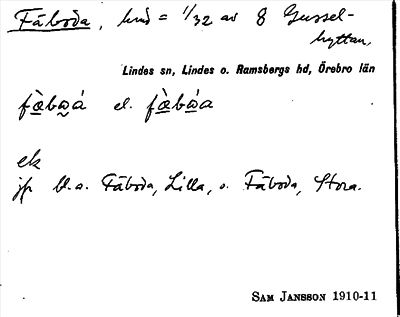 Fäboda, hmd = 1/32 av 8 Gussel-
hyttan.
Lindes sn, Lindes o. Ramsbergs hd, Örebro län
el.
ek
jfr bl.a. Fäboda, Lilla, o. Fäboda, Stora.
SAM JANSSON 1910-11